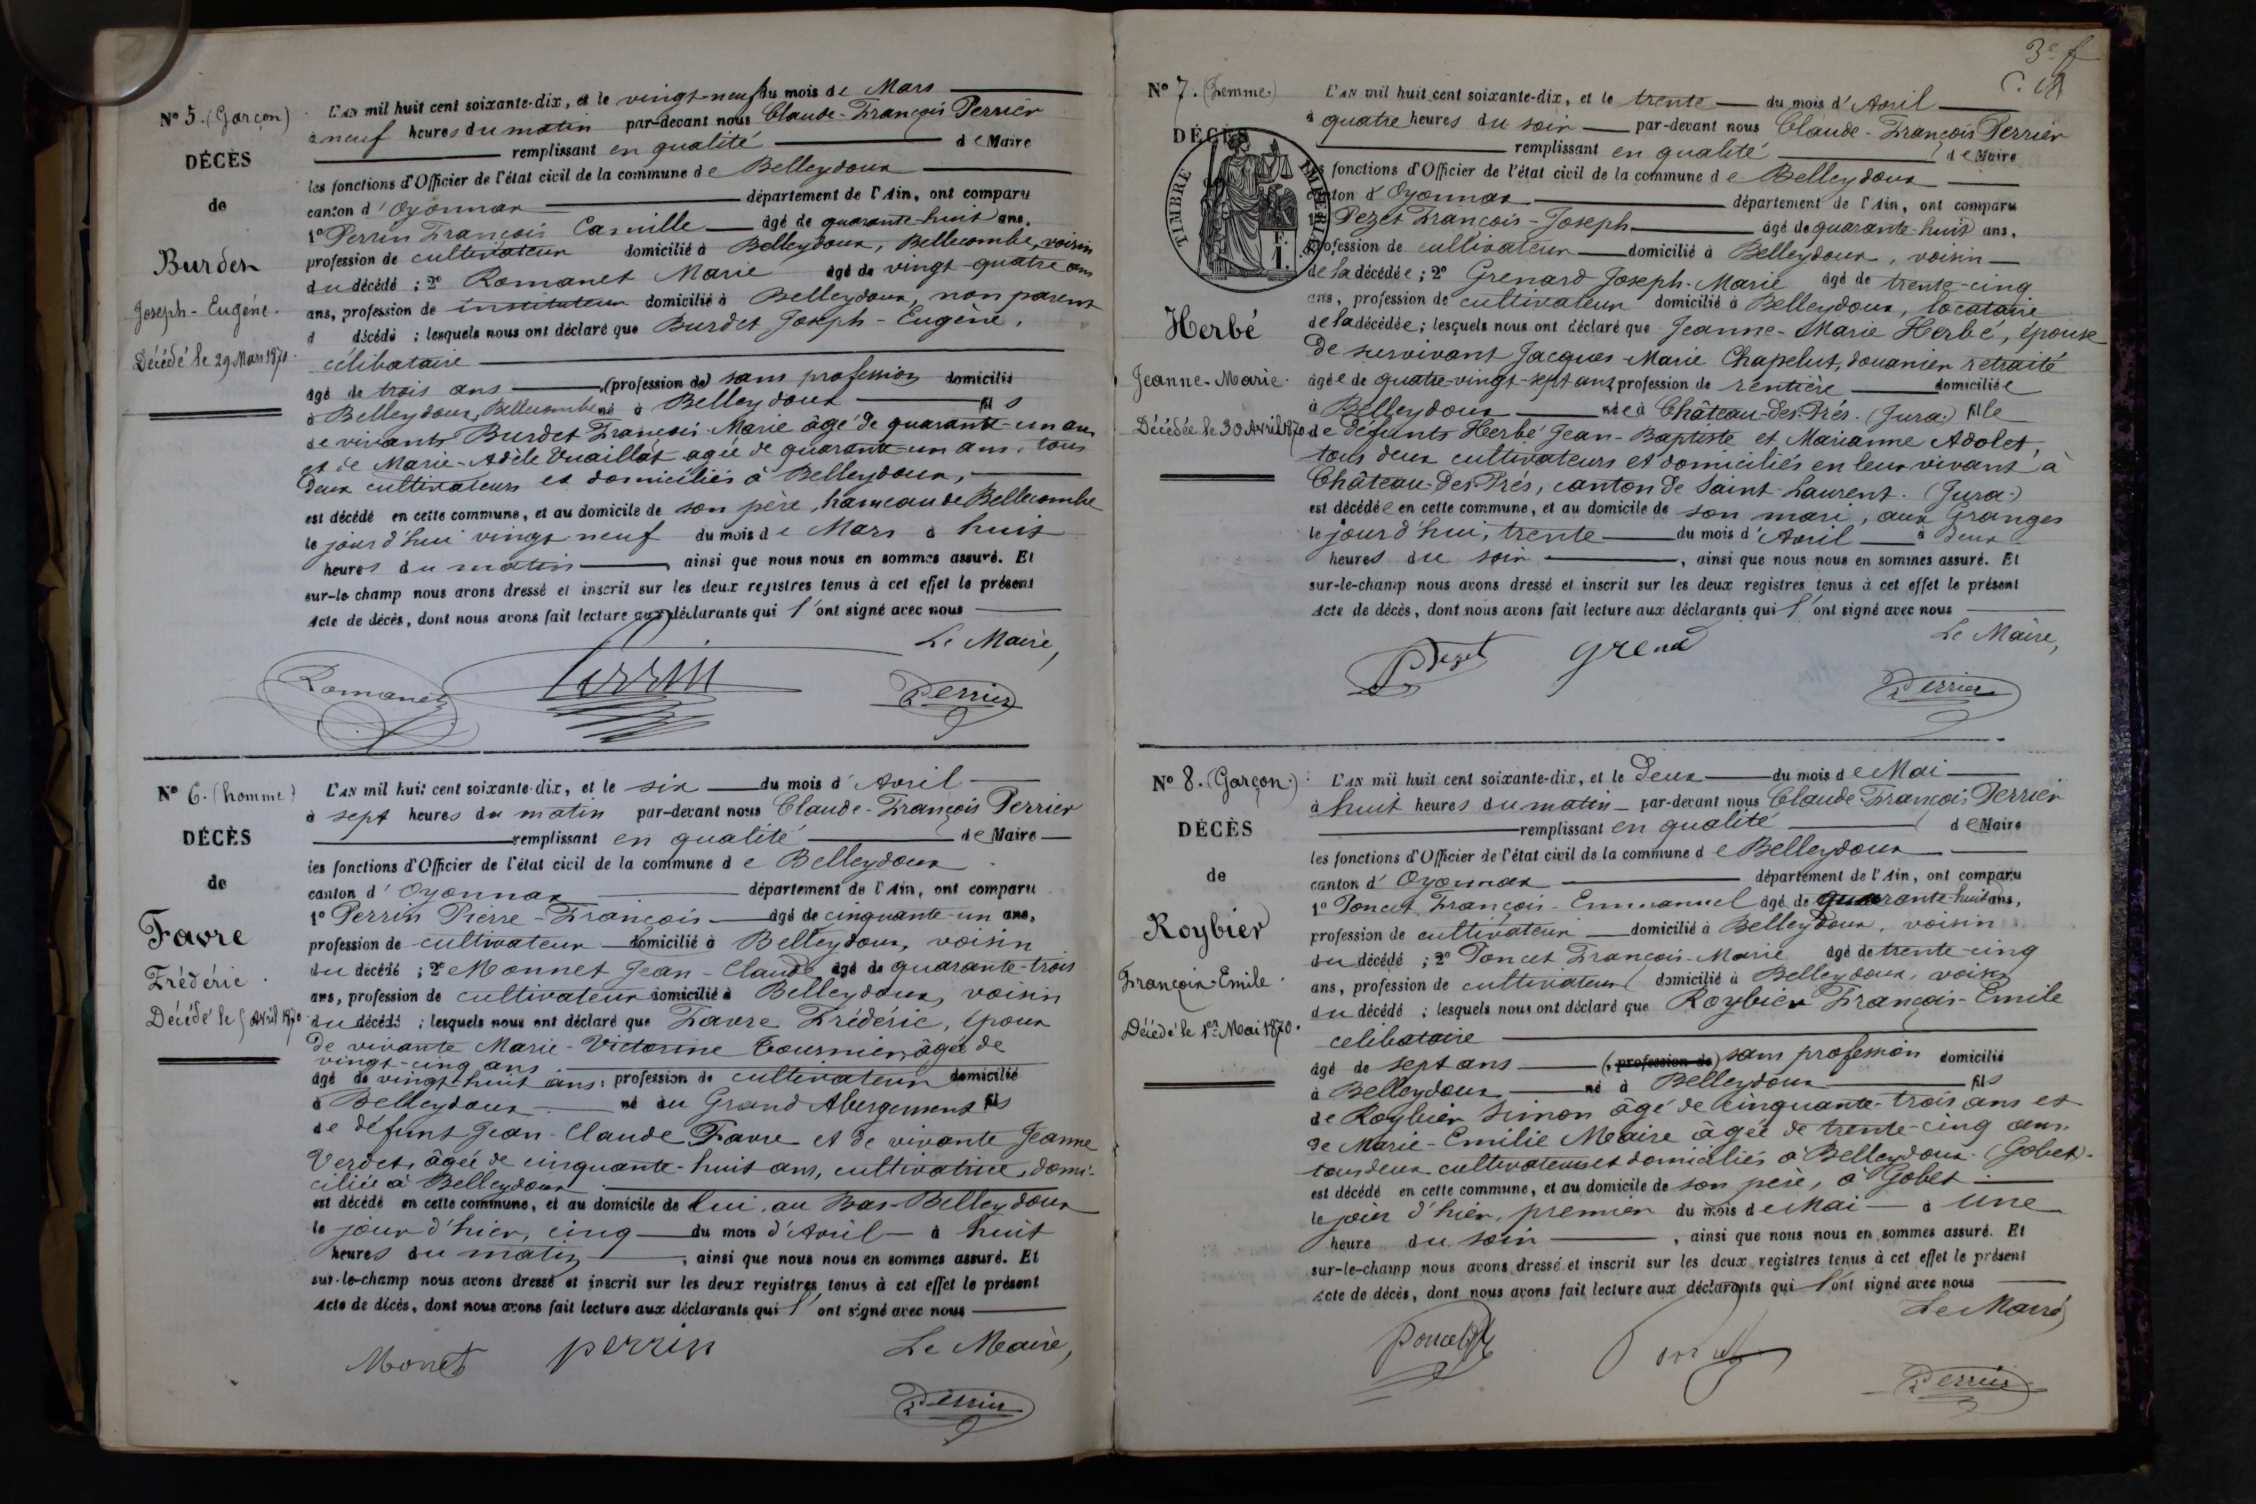 Nº 5. (Garçon)
DÉCÈS
de
Burdet
Joseph-Eugène.
Décédé le 29 Mars 1870.
L'AN mil huit cent soixante-dix, et le vingt-neuf du mois de Mars
à neuf heures du matin par-devant nous Claude-François Perrier
remplissant en qualité de Maire
les fonctions d'Officier de l'état civil de la commune de Belleydoux
canton d'Oyonnax département de l'Ain, ont comparu
1º Perrin François Camille âgé de quarante-huit ans,
profession de cultivateur domicilié à Belleydoux, Bellecombe, voisin
du décédé ; 2º Romanet Marie âgé de vingt-quatre ans
ans, profession de instituteur domicilié à Belleydoux, non parent
d décédé ; lesquels nous ont déclaré que Burdet Joseph-Eugène,
célibataire
âgé de trois ans (profession de) sans profession domicilié
à Belleydoux, Bellecombe né à Belleydoux fils
de vivants Burdet François-Marie âgé de quarante-un ans
et de Marie-Adèle Vuaillat agée de quarante-un ans, tous
deux cultivateurs et domiciliés à Belleydoux,
est décédé en cette commune, et au domicile de son père, hameau de Bellecombe
le jour d'hui vingt neuf du mois de Mars à huit
heures du matin, ainsi que nous nous en sommes assuré. Et
sur-le champ nous avons dressé et inscrit sur les deux registres tenus à cet effet le présent
Acte de décès, dont nous avons fait lecture aux déclarants qui l'ont signé avec nous
Le Maire,
Romanet Perrin Perrier
Nº 6. (homme)
DÉCÈS
de
Favre
Frédéric.
Décédé le 5 Avril 1870.
L'AN mil huit cent soixante-dix, et le six du mois d'Avril
à sept heures du matin par-devant nous Claude-François Perrier
remplissant en qualité de Maire
les fonctions d'Officier de l'état civil de la commune de Belleydoux
canton d'Oyonnax département de l'Ain, ont comparu
1º Perrin Pierre-François âgé de cinquante-un ans,
profession de cultivateur domicilié à Belleydoux, voisin
du décédé ; 2º Monnet Jean-Claude âgé de quarante-trois
ans, profession de cultivateur domicilié à Belleydoux, voisin
du décédé ; lesquels nous ont déclaré que Favre Frédéric, époux
de vivante Marie-Victorine Tournier, âgée de
vingt-cinq ans
âgé de vingt-huit ans, profession de cultivateur domicilié
à Belleydoux né au Grand Abergement fils
de défunt Jean-Claude Favre et de vivante Jeanne
Verdet, âgée de cinquante-huit ans, cultivatrice, domi-
ciliée à Belleydoux
est décédé en cette commune, et au domicile de lui, au Bas-Belleydoux
le jour d'hier, cinq du mois d'Avril à huit
heures du matin, ainsi que nous nous en sommes assuré. Et
sur-le-champ nous avons dressé et inscrit sur les deux registres tenus à cet effet le présent
Acte de décès, dont nous avons fait lecture aux déclarants qui l'ont signé avec nous
Le Maire,
Monet perrin
Perrier
3e f
Nº 7. (Femme)
DÉCÈS
TIMBRE IMPÉRIAL
F. 1.
Herbé
Jeanne-Marie.
Décédée le 30 Avril 1870
L'AN mil huit cent soixante-dix, et le trente du mois d'Avril
à quatre heures du soir par-devant nous Claude-François Perrier
remplissant en qualité de Maire
les fonctions d'Officier de l'état civil de la commune de Belleydoux
canton d'Oyonnax département de l'Ain, ont comparu
1º Pezet François-Joseph âgé de quarante-huit ans,
profession de cultivateur domicilié à Belleydoux, voisin
de la décédée ; 2º Grenard Joseph-Marie âgé de trente-cinq
ans, profession de cultivateur domicilié à Belleydoux, locataire
de la décédée ; lesquels nous ont déclaré que Jeanne-Marie Herbé, épouse
de survivant Jacques-Marie Chapelut, douanier retraité
âgée de quatre-vingt-sept ans, profession de rentière domiciliée
à Belleydoux née à Château-des-Prés. (Jura) fille
de défunts Herbé Jean-Baptiste et Marianne Adolet,
tous deux cultivateurs et domiciliés en leur vivant à
Château-des-Prés, canton de Saint-Laurent. (Jura)
est décédée en cette commune, et au domicile de son mari, aux Granges
le jour d'hui, trente du mois d'Avril à deux
heures du soir, ainsi que nous nous en sommes assuré. Et
sur-le-champ nous avons dressé et inscrit sur les deux registres tenus à cet effet le présent
Acte de décès, dont nous avons fait lecture aux déclarants qui l'ont signé avec nous
Le Maire,
Pezet Grena
Perrier
Nº 8. (Garçon.)
DÉCÈS
de
Roybier
François-Emile.
Décédé le 1er Mai 1870.
L'AN mil huit cent soixante-dix, et le deux du mois de Mai
à huit heures du matin par-devant nous Claude-François Perrier
remplissant en qualité de Maire
les fonctions d'Officier de l'état civil de la commune de Belleydoux
canton d'Oyonnax département de l'Ain, ont comparu
1º Poncet François-Emmanuel âgé de quarante-huit ans,
profession de cultivateur domicilié à Belleydoux, voisin
du décédé ; 2º Poncet François-Marie âgé de trente-cinq
ans, profession de cultivateur domicilié à Belleydoux, voisin
du décédé ; lesquels nous ont déclaré que Roybier François-Emile
celibataire
âgé de sept ans (, profession de) sans profession domicilié
à Belleydoux né à Belleydoux fils
de Roybier Simon âgé de cinquante-trois ans et
de Marie-Emilie Meaire âgée de trente-cinq ans,
tous deux cultivateurs et domiciliés à Belleydoux. (Gobet).
est décédé en cette commune, et au domicile de son père, à Gobet
le jour d'hier, premier du mois de Mai à une
heure du soir, ainsi que nous nous en sommes assuré. Et
sur-le-champ nous avons dressé et inscrit sur les deux registres tenus à cet effet le présent
Acte de décès, dont nous avons fait lecture aux déclarants qui l'ont signé avec nous
Le Maire
Poncet Poncet
Perrier